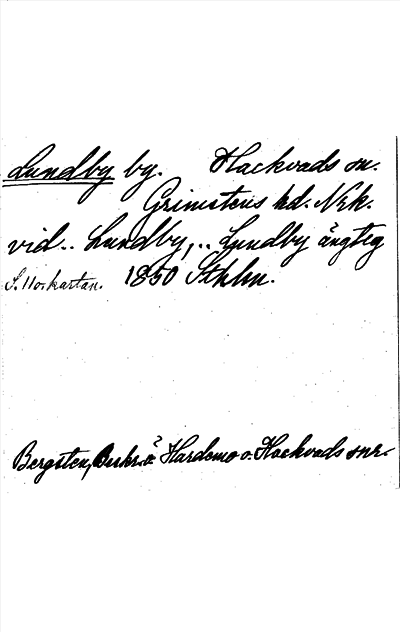 Lundby by. Hackvads sn.
Grimstens hd. Nrk.
vid.. Lundby,.. Lundby ängteg
1850 Sthlm.
Bergsten, Beskr. ö. Hardemo o. Hackvads snr.